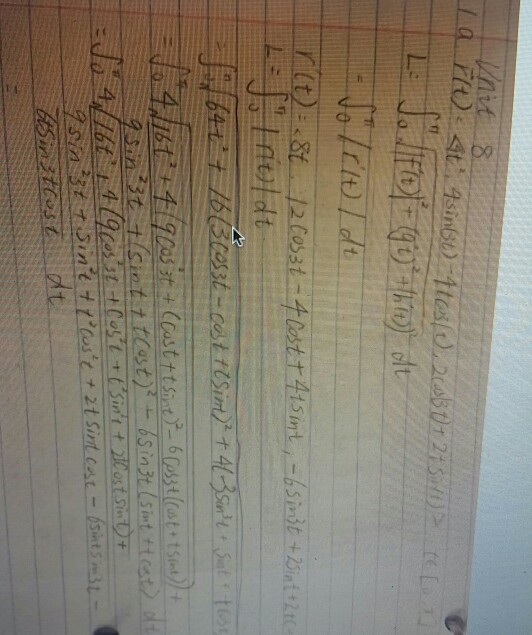 Unit 8
1 a r(t) = 4t², 4sin(3t) - 4tcos(t), 2cos(3t) + 2tsin(t) > t∈[0,π]
L = ∫₀^π √|f'(t)|² + (g't)² + (h'(t))² dt
= ∫₀^π |r'(t)| dt
r'(t) = <8t, 12cos3t - 4cost + 4tsint, -6sin3t + 2sint + 2t
L = ∫₀^π |r'(t)| dt
= ∫₀^π √64t² + 16(3cos3t - cost + tsint)² + 4(-3sin3t + sint + tcos
= ∫₀^π 4√16t² + 4(9cos²3t + (cost + tsint)² - 6cos3t(cost + tsint)) +
9sin²3t + (sint + tcost)² - 6sin3t(sint + tcost) dt
= ∫₀^π 4√16t² + 4(9cos²3t + cos²t + t²sin²t + 2tcostsint) +
9sin²3t + sin²t + t²cos²t + 2tsintcost - 6sintsin3t -
6tsin3tcost dt
=